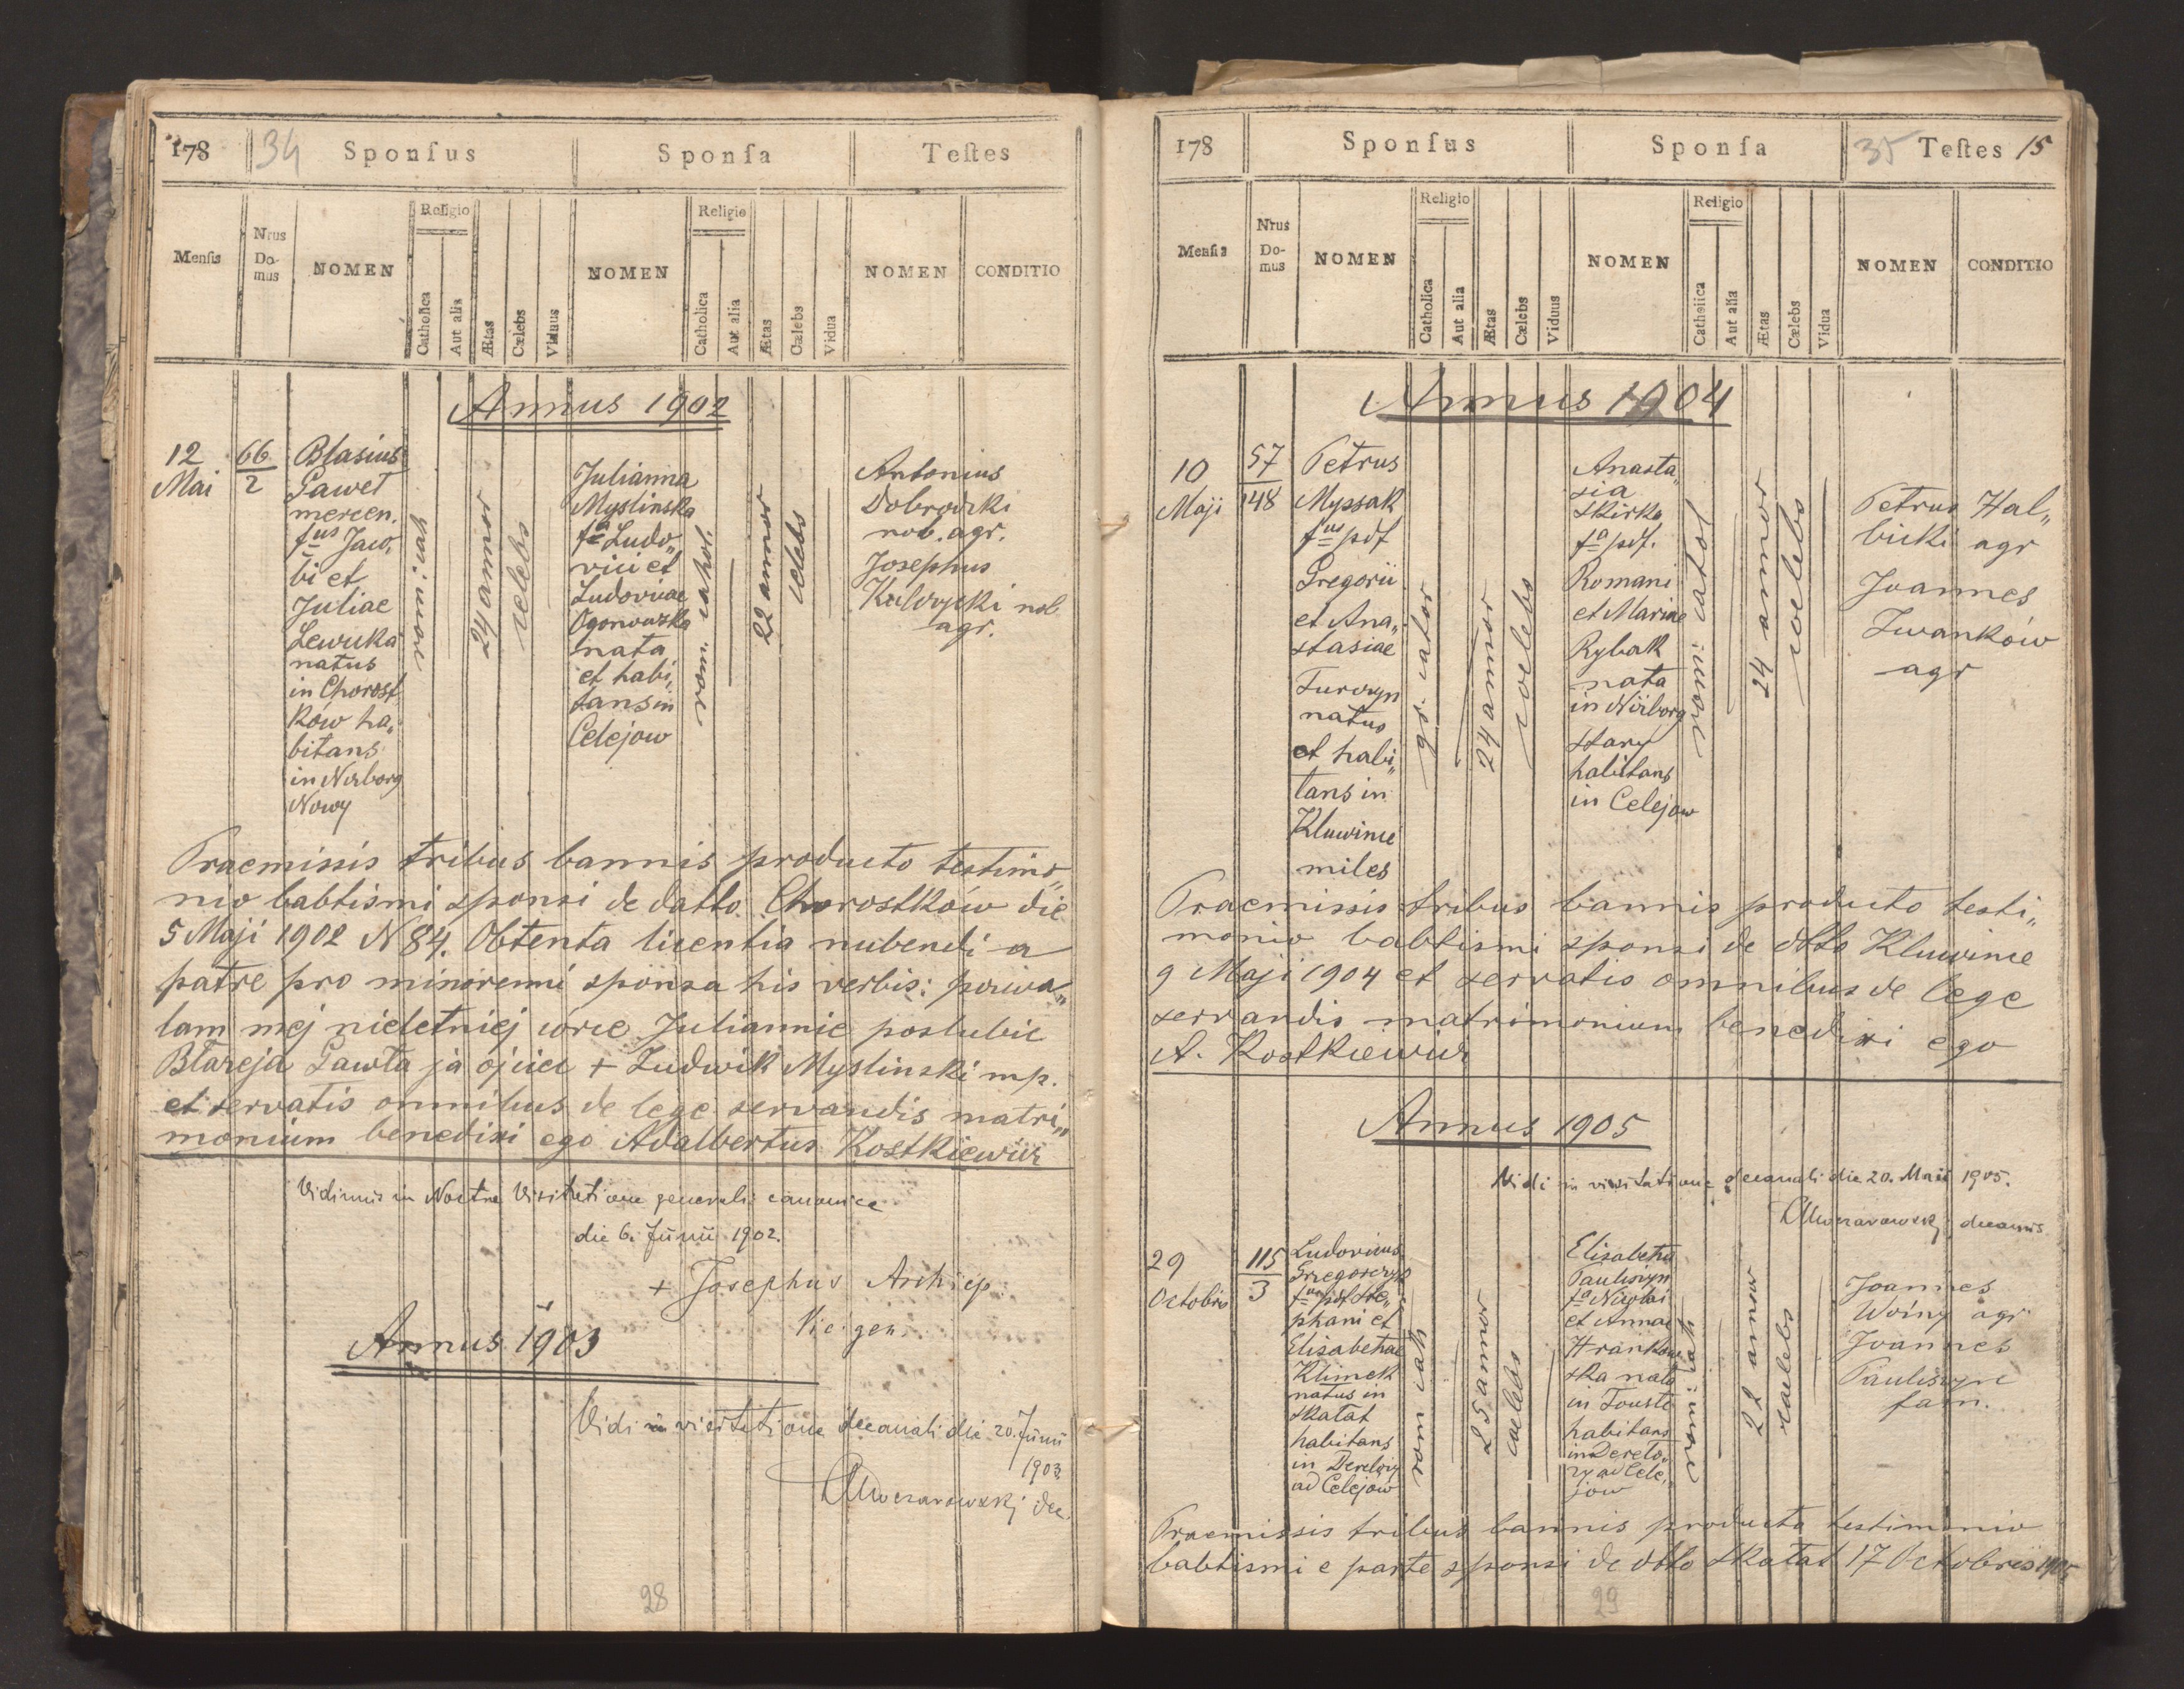 178 34 Sponſus Sponſa Teſtes
Menſis Nrus Domus NOMEN Religio Catholica Aut alia Ætas Cælebs Viduus NOMEN Religio Catholica Aut alia Ætas Cælebs Vidua NOMEN CONDITIO
Annus 1902
12
Mai
66
2
Błasius
Paweł
mercen.
fus Jacо„
bi et
Juliae
Lewicka
natus
in Chorost„
ków ha„
bitans
in Niżborg
Nowy
rom: cath
24 annor
celebs
Julianna
Myslinska
fa Ludo„
vici et
Ludovicae
Ogonowska
nata
et habi„
tans in
Celejow
rom. cathol.
22 annor
celebs
Antonius
Dobrodzki
nob. agr.
Josephus
nob
agr.
Praemissis tribus bannis producto testimo„
nio babtismi sponsi de datto Chorostków die
5 Maji 1902 N 84. Obtenta licentia nubendi a
patre pro minorenni sponsa his verbis: pozwa„
lam mej nieletniej córce Juliannie poslubic
Błażeja Pawła ja ojciec + Ludwik Myslinski mp.
et servatis omnibus de lege servandis matri„
monium benedixi ego Adalbertus Kostkiewicz
Vidimus in Nostra Visitatione generali canonica
die 6. Junii 1902.
+ Josephus Archiep.
Annus 1903
Vidi in visitatione decanali die 20. Junii
1903
dec.
28
178 Sponſus Sponſa 35 Teſtes 15
Menſis Nrus Domus NOMEN Religio Catholica Aut alia Ætas Cælebs Viduus NOMEN Religio Catholica Aut alia Ætas Cælebs Vidua NOMEN CONDITIO
Annus 1904
10
Maji
57
148
Petrus
Myssak
fus pdf
Gregorii
et Ana„
stasiae
Furczyn
natus
et habi„
tans in
Kluwince
miles
gr. cator
24 annor
coelebs
Anasta„
sia
Skirka
fa pdf.
Romani
et Mariae
Rybak
nata
in Niżborg
stary
habitans
in Celejow
rom: catol
24 annor
coelebs
Petrus Hal„
bicki agr
Joannes
Iwanków
agr
Praemissis tribus bannis producto testi„
monio babtismi sponsi de dtto Kluwince
9 Maji 1904 et servatis omnibus de lege
servandis matrimonium benedixi ego
A. Kostkiewicz
Annus 1905
Vidi in visitatione decanali die 20. Maii 1905.
decanus
29
Octobris
115
3
Ludovicus
Grzegorczyk
fus pdf Ste„
phani et
Elisabethae
Klimek
natus in
Skałat
habitans
in Deretory
ad Celejow
rom cath
25 annor
caelebs
Elisabetha
Pauliszyn
fa Nicolai
et Annae
Hrankow„
ska nata
in Touste
habitans
in Dereto„
ry ad Cele„
jow
rom: cath
22 annor
caelebs
Joannes
Woźny agr
Joannes
Pauliszyn
fam.
Praemissis tribus bannis producta testimonio
babtismi e parte sponsi de dtto Skałat 17 Octobris 1905
29